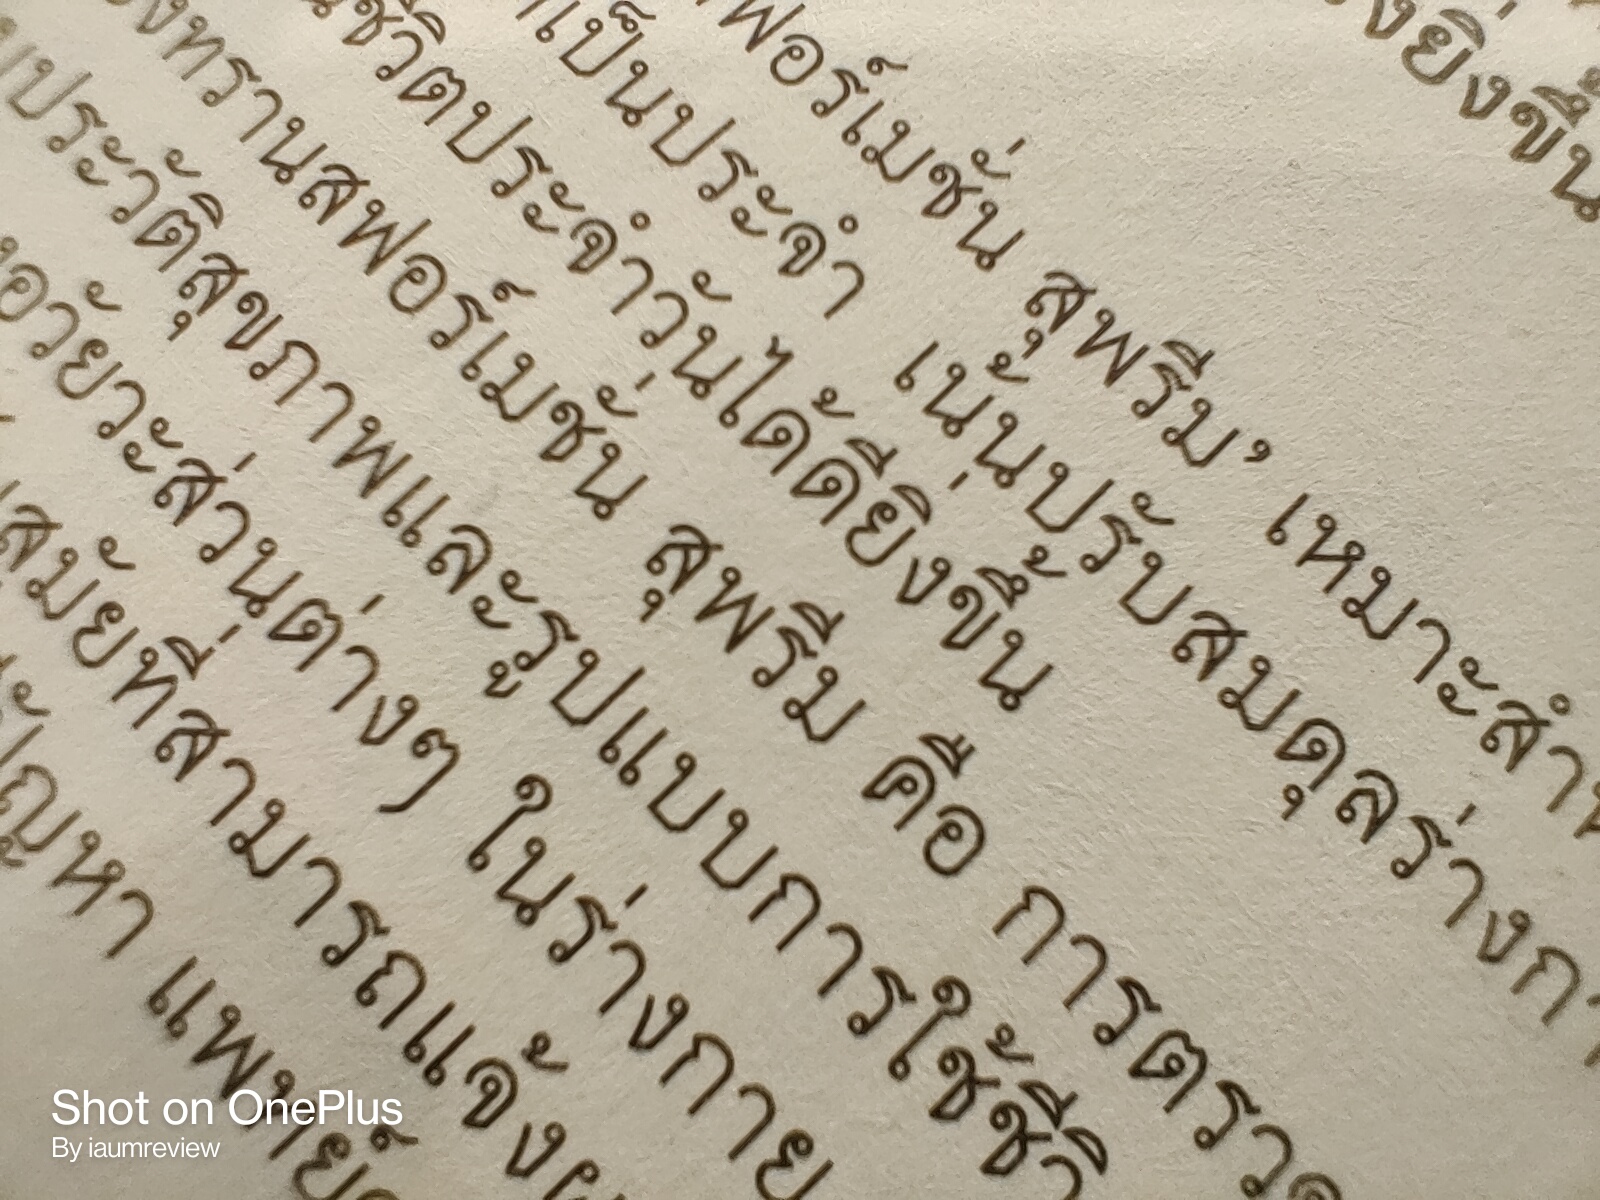 ยิ่งขึ้น
ฟอร์เมชั่น สุพรีม’ เหมาะสำ
เป็นประจำ เน้นปรับสมดุลร่างกา
ชีวิตประจำวันได้ดียิ่งขึ้น
ทรานสฟอร์เมชั่น สุพรีม คือ การตรวจ
ประวัติสุขภาพและรูปแบบการใช้ชีวิ
อวัยวะส่วนต่างๆ ในร่างกาย
สมัยที่สามารถแจ้งผ
ปัญหา แพทย์
Shot on OnePlus
By iaumreview